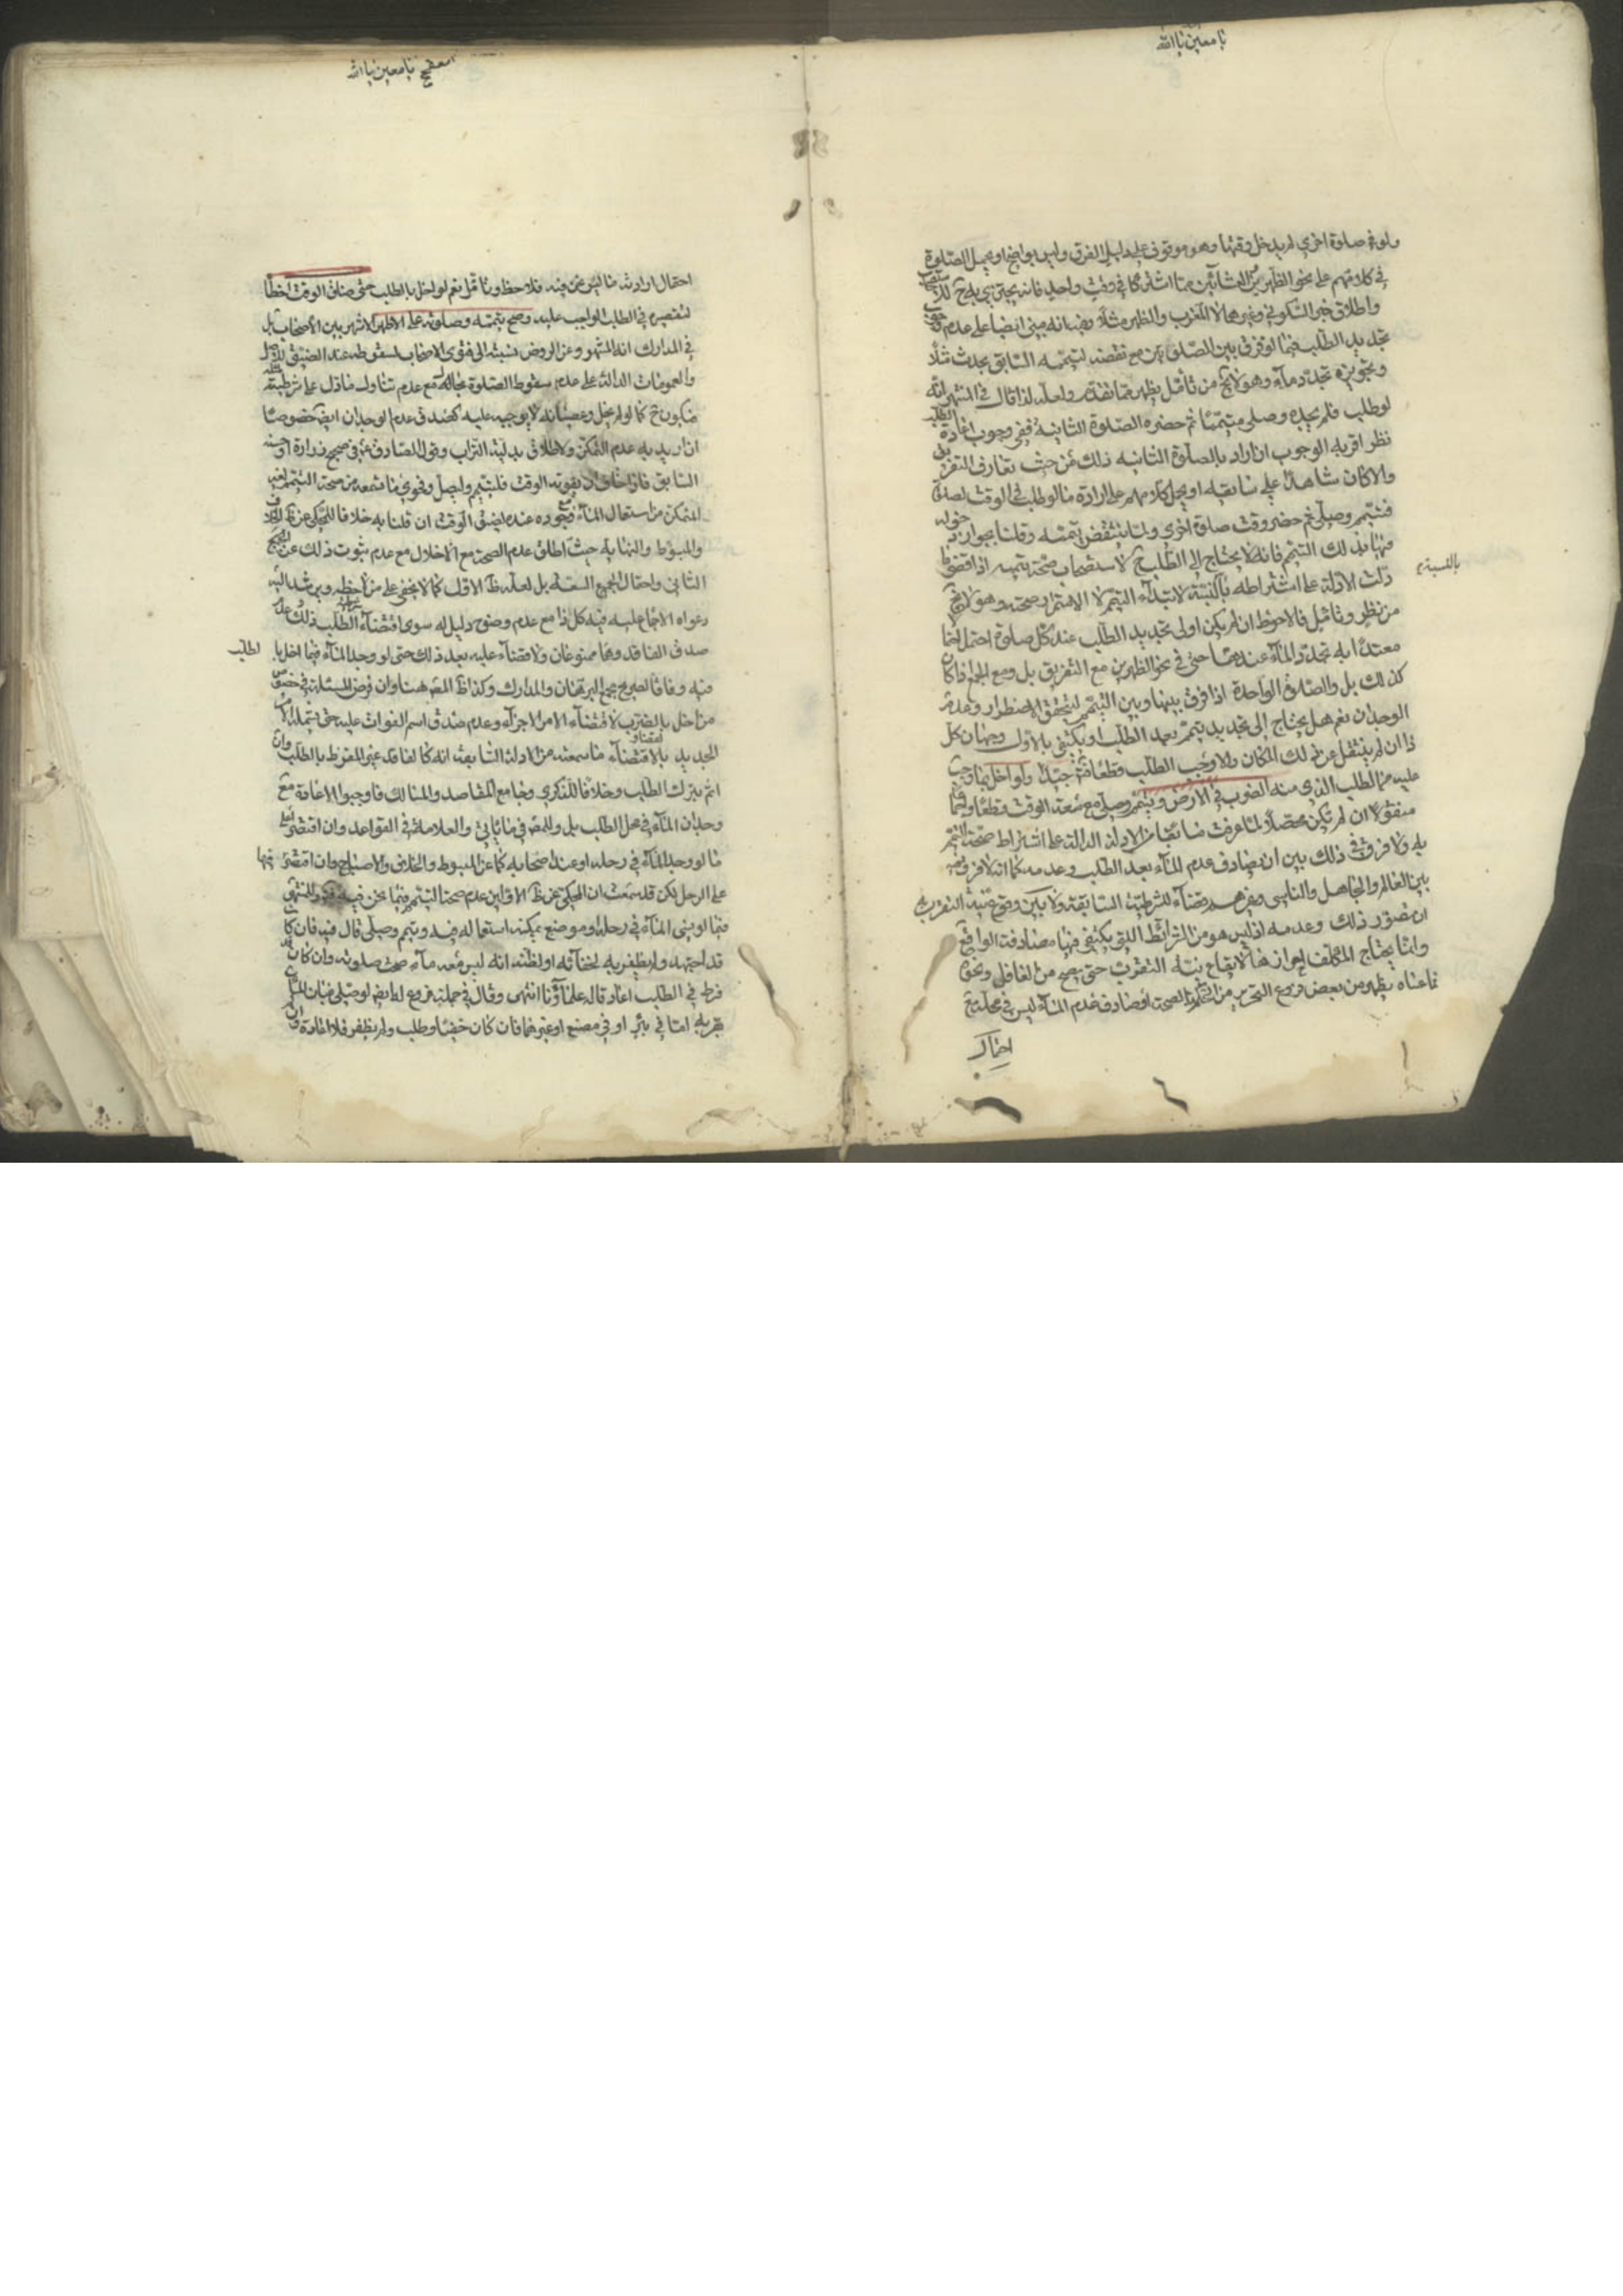 يا معين يا الله
ولو في صلوة اخرى لم يدخل وقتها وهو موقوف على دليل الفرق وليس بواضح او يحمل الصلوة
في كلامهم على نحو الظهرين والعشائين مما اشتركا في وقت واحد فانه يجتزي به ح للاستصحاب
واطلاق خبر السكوني وغيره حال المغرب والظهر مثلا وفيه انه مبني ايضا على عدم وجوب
تجديد الطلب فيما لو فرق بين الصلوتين مع نقضه لتيممه السابق بحدث مثلا
وتجويزه تجدد ماء وهو لا يخ من تأمل يظهر مما تقدم ولعله لذا قال في المنتهى انه
لو طلب فلم يجده وصلى متيمما ثم حضره الصلوة الثانية ففي وجوب اعادة الطلب
نظر اقربه الوجوب ان اراد بالصلوة الثانية ذلك من حيث تعارف التفريق
والا كان شاهدا على سابقيه او يحمل كلامهم على ارادة ما لو طلب في الوقت لصلوة
فتيمم وصلى ثم حضر وقت صلوة اخرى ولما ينتقض تيممه وقلنا بجواز دخوله
فيها بذلك التيمم فانه لا يحتاج الى الطلب ح لاستصحاب صحة تيممه اذ اقصى ما
بالنسبة
دلت الادلة على اشتراطه بالنسبة لابتداء التيمم لا لاستمرار صحته وهو لا يخ
من نظر وتأمل فالاحوط ان لم يكن اولى تجديد الطلب عند كل صلوة احتمل احتمالا
معتدا به تجدد الماء عندها حتى في نحو الظهرين مع التفريق بل ومع الجمع اذا كان
كذلك بل والصلوة الواحدة اذا فرق بينها وبين التيمم ليتحقق الاضطرار وعدم
الوجدان نعم هل يحتاج الى تجديد تيمم بعد الطلب او يكتفي بالاول وجهان كل
ذا ان لم ينتقل عن ذلك المكان والا وجب الطلب قطعا فتأمل جيدا ولو اخل بما وجب
عليه من الطلب الذي منه الضرب في الارض وتيمم وصلى مع سعة الوقت قطعا واجماعا
منقولا ان لم يكن محصلا لما عرفت سابقا من الادلة الدالة على اشتراط صحة التيمم
به ولا فرق في ذلك بين ان يصادف عدم الماء بعد الطلب وعدمه كما انه لا فرق فيه
بين العالم والجاهل والناسي وغيرهم قضاء للشرطية السابقة ولا بين وقوع نية التقرب
ان تصور ذلك وعدمه اذ ليس هو من الشرائط التي يكتفى فيها مصادفة الواقع
وانما يحتاج المكلف لاحرازها لايقاع نية التقرب حتى يصح من الغافل ونحوه
فما عساه يظهر من بعض فروع التحرير من الصحة لو صادف عدم الماء ليس في محله مع
احتمال
يا معين يا الله
احتمال ارادته ما ليس نحن فيه فلاحظ وتأمل نعم لو اخل بالطلب حتى ضاق الوقت اخطأ
لتقصيره في الطلب الواجب عليه وصح تيممه وصلوته على الاظهر الاشهر بين الاصحاب بل
في المدارك انه المشهور وعن الروض نسبته الى فتوى الاصحاب لسقوطه عند الضيق للاصل
والعمومات الدالة على عدم سقوط الصلوة بحال مع عدم تناول ما دل على شرطيته
فيكون ح كما لو لم يخل وعصيانه لا يوجبه عليه كصدق عدم الوجدان ايضا خصوصا
ان اريد به عدم التمكن ولاطلاق بدلية التراب وقول الصادق في صحيح زرارة او حسنه
السابق فاذا خاف ان يفوته الوقت فليتيمم وليصل وفحوى ما تسمعه من صحة التيمم لغير
المتمكن من استعمال الماء مع وجوده عنده لضيق الوقت ان قلنا به خلافا للمحكي عن الخلاف
والمبسوط والنهاية حيث اطلق عدم الصحة مع الاخلال مع عدم ثبوت ذلك عن
الثاني واحتمال الجميع السعة بل لعله ظ الاول كما لا يخفى على من لاحظه ويرشد اليه
دعواه الاجماع عليه فيه كل ذا مع عدم وضوح دليل له سوى اقتضاء الطلب ذلك وعدم
صدق الفاقد وهما ممنوعان ولا قضاء عليه بعد ذلك حتى لو وجد الماء فيما اخل بالطلب
فيه وفاقا لصريح جمع البرهان والمدارك وكذا ظ المص هنا وان فرض المسئلة في خصوص
من اخل بالضرب لاقتضاء الامر الاجزاء وعدم صدق اسم الفوات عليه حتى يشمله الامر
الجديد بالاقتضاء ما سمعته من الادلة السابقة انه كالفاقد غير المفرط بالطلب وان
اثم بترك الطلب وخلافا للذكرى وجامع المقاصد والمسالك فاوجبوا الاعادة مع
وجدان الماء في محل الطلب بل وللمص فيما يأتي والعلامة في القواعد وان اقتصرا على
ما لو وجد الماء في رحله او عند اصحابه كما عن المبسوط والخلاف والاصباح وان اقتصر فيها
على الرحل لكن قد سمعت ان المحكي عن ظ الاولين عدم صحة التيمم فيما نحن فيه والمنتهى
فيما لو نسي الماء في رحله او موضع يمكنه استعماله فيه وتيمم وصلى قال فيه فان كان
قد اجتهد ولم يظفر به لخفائه او لظنه انه ليس معه ماء صحت صلوته وان كان قد
فرط في الطلب اعاد قاله علماؤنا انتهى وقال في جملة فروع له ايضا لو صلى فبان الماء
بقربه اما في بئر او في مصنع او غيرهما فان كان خفيا وطلب ولم يظفر فلا اعادة وان